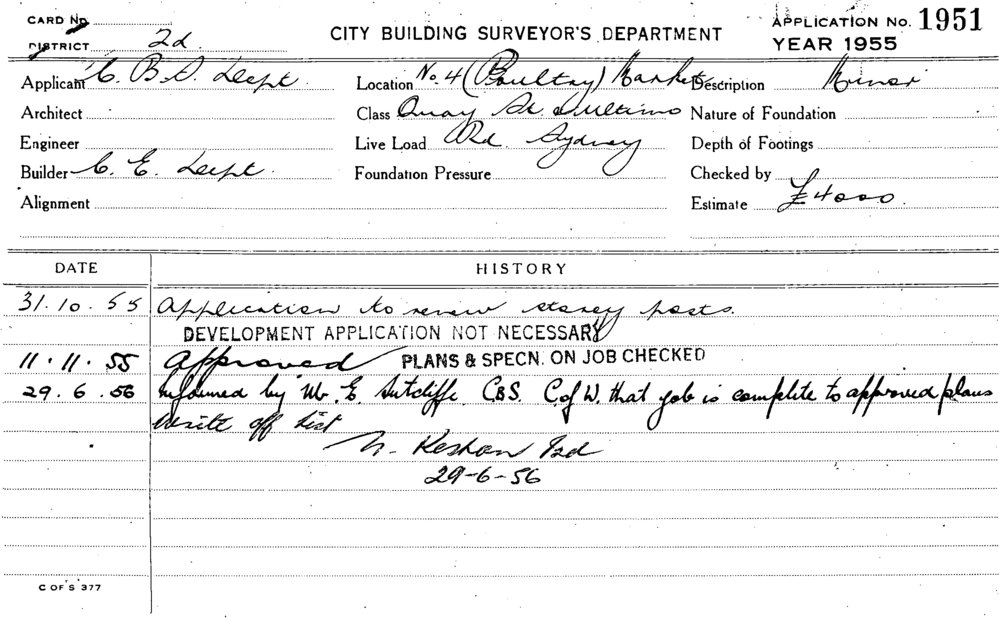 CARD No
DISTRICT 2d.
CITY BUILDING SURVEYOR'S DEPARTMENT
APPLICATION No. 1951
YEAR 1955
Applicant C. B. S. Dept. Location No. 4 (Poultry) Markets Description Minor
Architect Class Quay St. Ultimo Nature of Foundation
Engineer Live Load Rd. Sydney Depth of Footings
Builder C. E. Dept. Foundation Pressure Checked by
Alignment Estimate £4000.
DATE HISTORY
31.10.55 Application to renew storey posts.
DEVELOPMENT APPLICATION NOT NECESSARY
11.11.55 Approved PLANS & SPECN. ON JOB CHECKED
29.6.56 Informed by Mr. E. Sutcliffe. C.B.S. C of W. that job is complete to approved plans
Write off List
29-6-56
C OF S 377